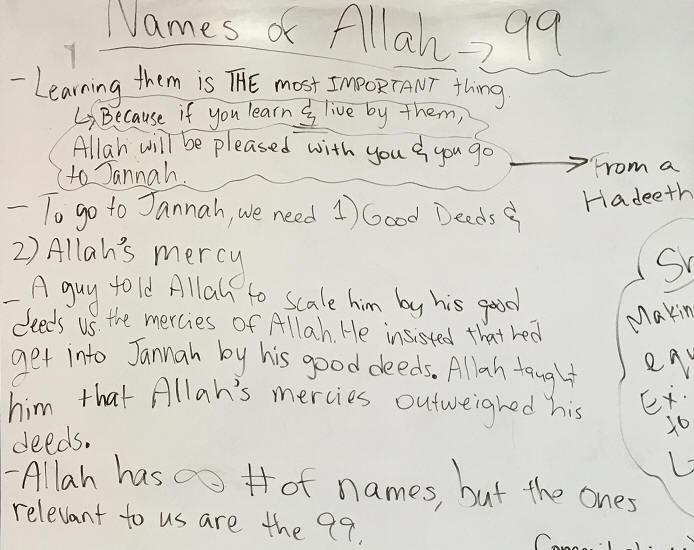 Names of Allah → 99
- Learning them is THE most IMPORTANT thing.
↳ Because if you learn & live by them,
Allah will be pleased with you & you go
to Jannah.
→ From a
Hadeeth
- To go to Jannah, we need 1) Good Deeds &
2) Allah's mercy
- A guy told Allah to scale him by his good
deeds vs. the mercies of Allah. He insisted that he'd
get into Jannah by his good deeds. Allah taught
him that Allah's mercies outweighed his
deeds.
- Allah has ∞ # of names, but the ones
relevant to us are the 99.
Sh
Makin
equ
Ex.
to